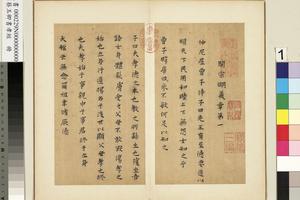 開宗明義章第一
仲尼居曾子侍子曰先王有至德要道以
順天下民用和睦上下無怨女知之乎
曾子避席曰參不敏何足以知之
子曰夫孝德之本也教之所繇生也復坐吾
語女身體髮膚受之父母不敢毀傷孝之
始也立身行道揚名於後世以顯父母孝之終
也夫孝始於事親中於事君終於立身
大雅云無念爾祖聿脩厥德
1